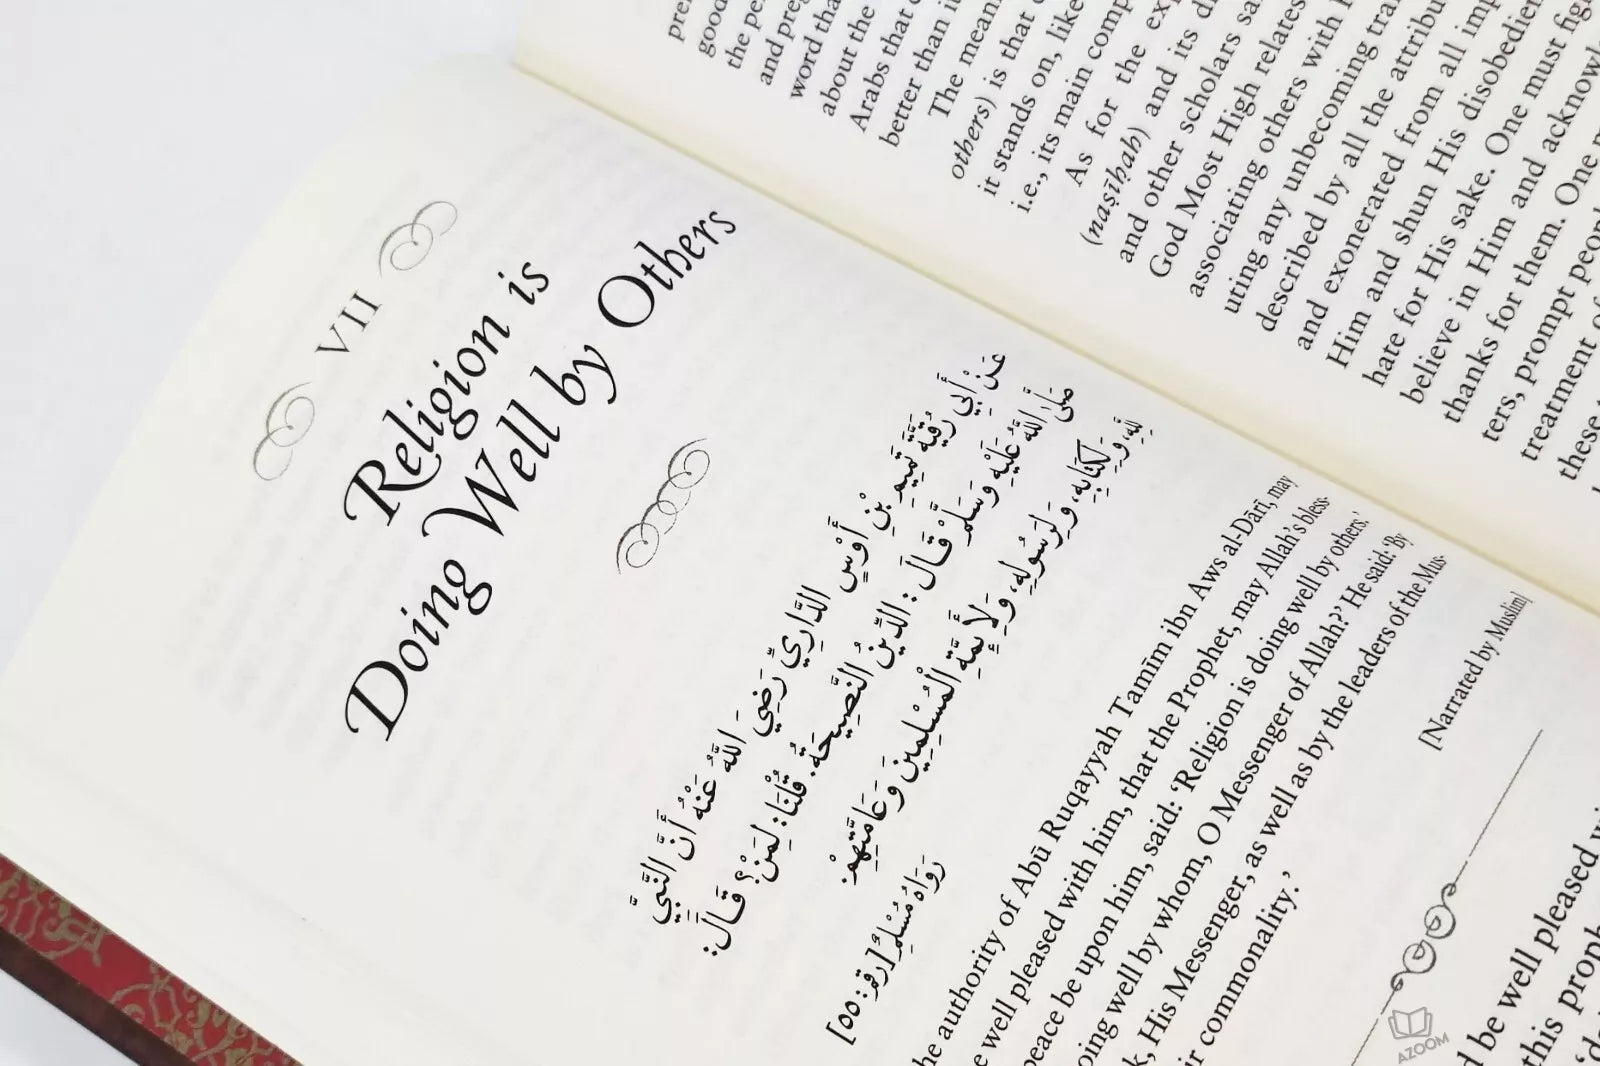 VII
Religion is
Doing Well by Others
عَنْ أَبِي رُقَيَّةَ تَمِيمِ بْنِ أَوْسٍ الدَّارِيِّ رَضِيَ اللَّهُ عَنْهُ أَنَّ النَّبِيَّ
صَلَّى اللَّهُ عَلَيْهِ وَسَلَّمَ قَالَ: الدِّينُ النَّصِيحَةُ. قُلْنَا: لِمَنْ؟ قَالَ:
لِلَّهِ، وَلِكِتَابِهِ، وَلِرَسُولِهِ، وَلِأَئِمَّةِ الْمُسْلِمِينَ وَعَامَّتِهِمْ.
رَوَاهُ مُسْلِمٌ [رقم: ٥٥]
he authority of Abū Ruqayyah Tamīm ibn Aws al-Dārī, may
e well pleased with him, that the Prophet, may Allah's bless-
peace be upon him, said: 'Religion is doing well by others.'
oing well by whom, O Messenger of Allah?' He said: 'By
k, His Messenger, as well as by the leaders of the Mus-
ir commonality.'
[Narrated by Muslim]
d be well pleased wi
this proph
good
the pe
and preg
word tha
about the
Arabs that
better than i
The mean
others) is that
it stands on, like
i.e., its main comp
As for the exp
(naṣīḥah) and its d
and other scholars sa
God Most High relates
associating others with
uting any unbecoming tra
described by all the attribu
and exonerated from all imp
Him and shun His disobedien
hate for His sake. One must fig
believe in Him and acknowl
thanks for them. One m
ters, prompt peopl
treatment of
these
AZOOM